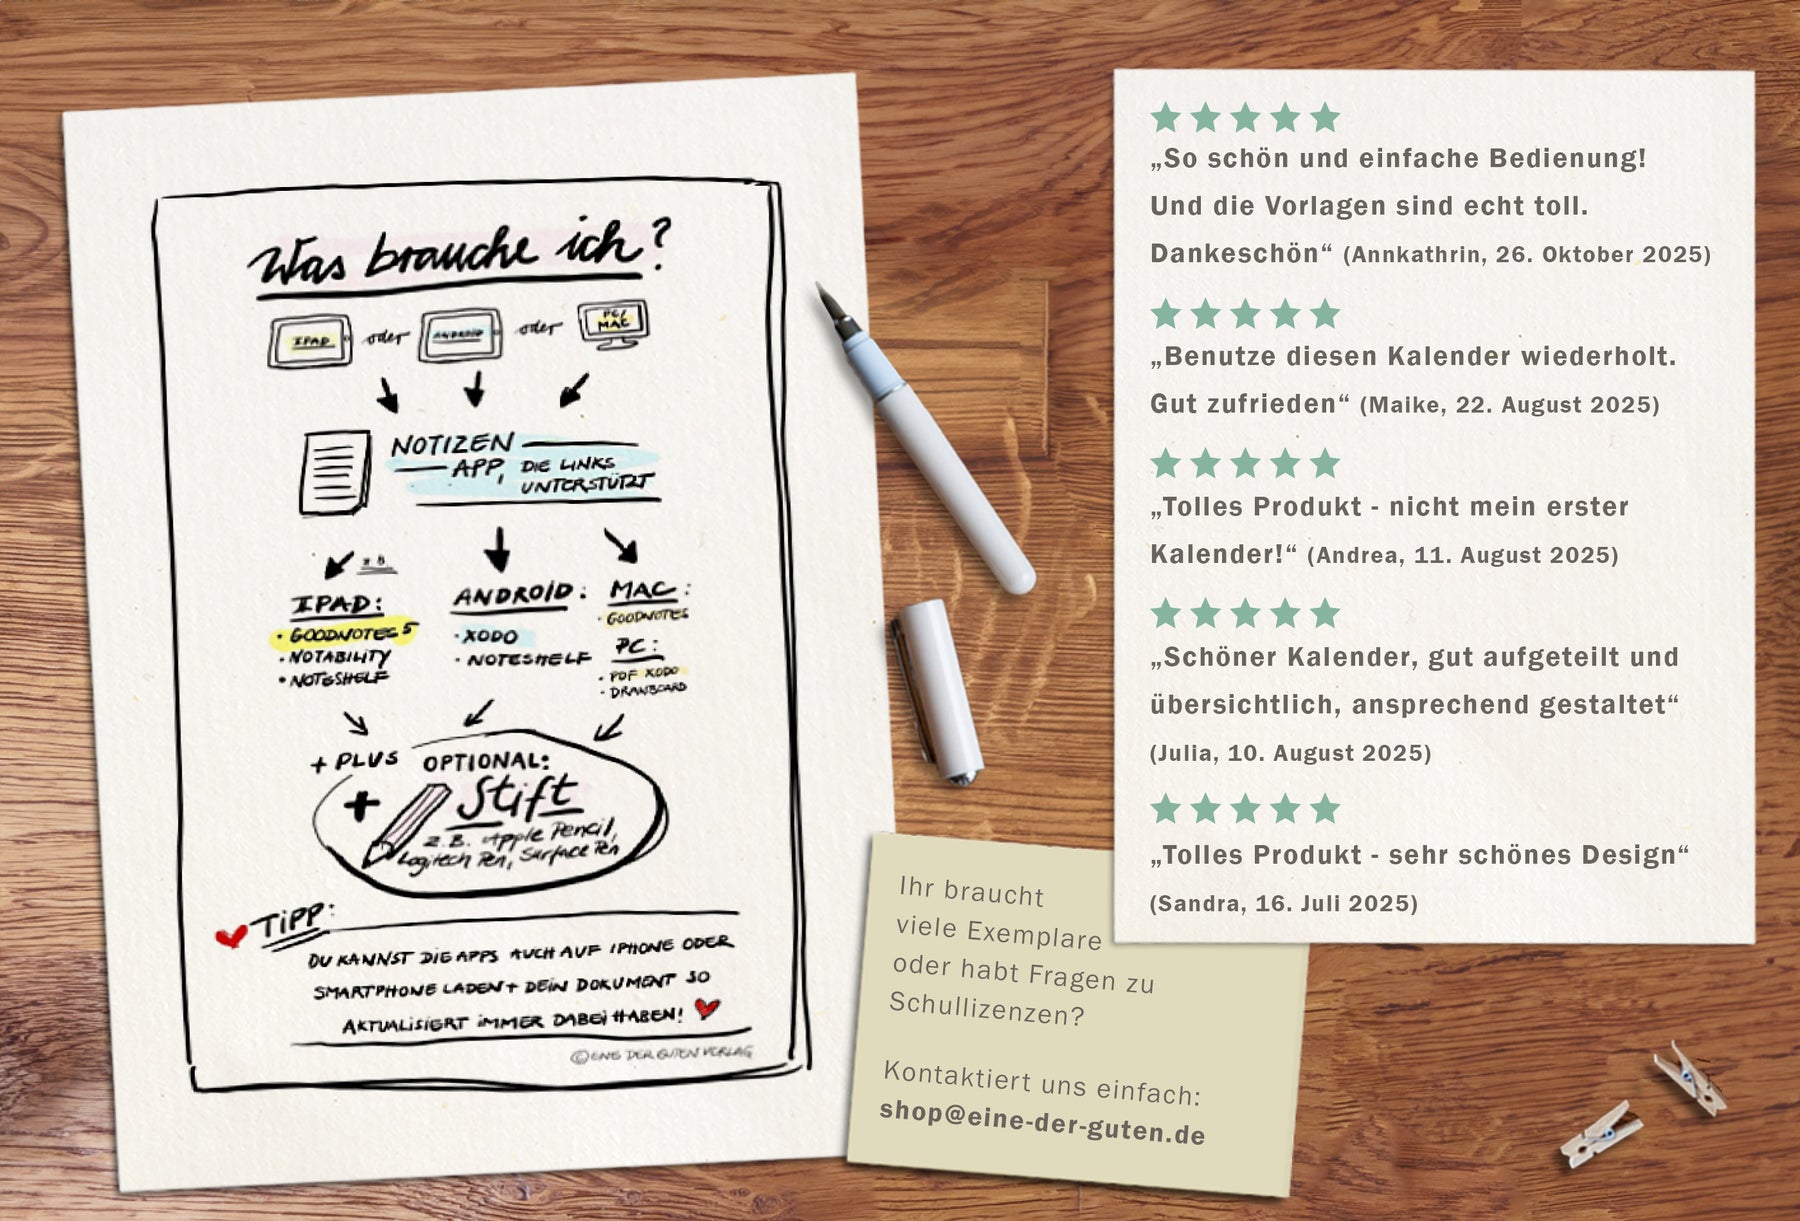 Was brauche ich?
IPAD oder ANDROID oder PC/
MAC
NOTIZEN
APP, DIE LINKS
UNTERSTÜTZT
z.B.
IPAD:
· GOODNOTES 5
· NOTABILITY
· NOTESHELF
ANDROID:
· XODO
· NOTESHELF
MAC:
· GOODNOTES
PC:
· PDF XODO
· DRAWBOARD
+ PLUS OPTIONAL:
+ Stift
z.B. Apple Pencil,
Logitech Pen, Surface Pen
TIPP:
DU KANNST DIE APPS AUCH AUF IPHONE ODER
SMARTPHONE LADEN + DEIN DOKUMENT SO
AKTUALISIERT IMMER DABEI HABEN!
© EINE DER GUTEN VERLAG
„So schön und einfache Bedienung!
Und die Vorlagen sind echt toll.
Dankeschön“ (Annkathrin, 26. Oktober 2025)
„Benutze diesen Kalender wiederholt.
Gut zufrieden“ (Maike, 22. August 2025)
„Tolles Produkt - nicht mein erster
Kalender!“ (Andrea, 11. August 2025)
„Schöner Kalender, gut aufgeteilt und
übersichtlich, ansprechend gestaltet“
(Julia, 10. August 2025)
„Tolles Produkt - sehr schönes Design“
(Sandra, 16. Juli 2025)
Ihr braucht
viele Exemplare
oder habt Fragen zu
Schullizenzen?
Kontaktiert uns einfach:
shop@eine-der-guten.de